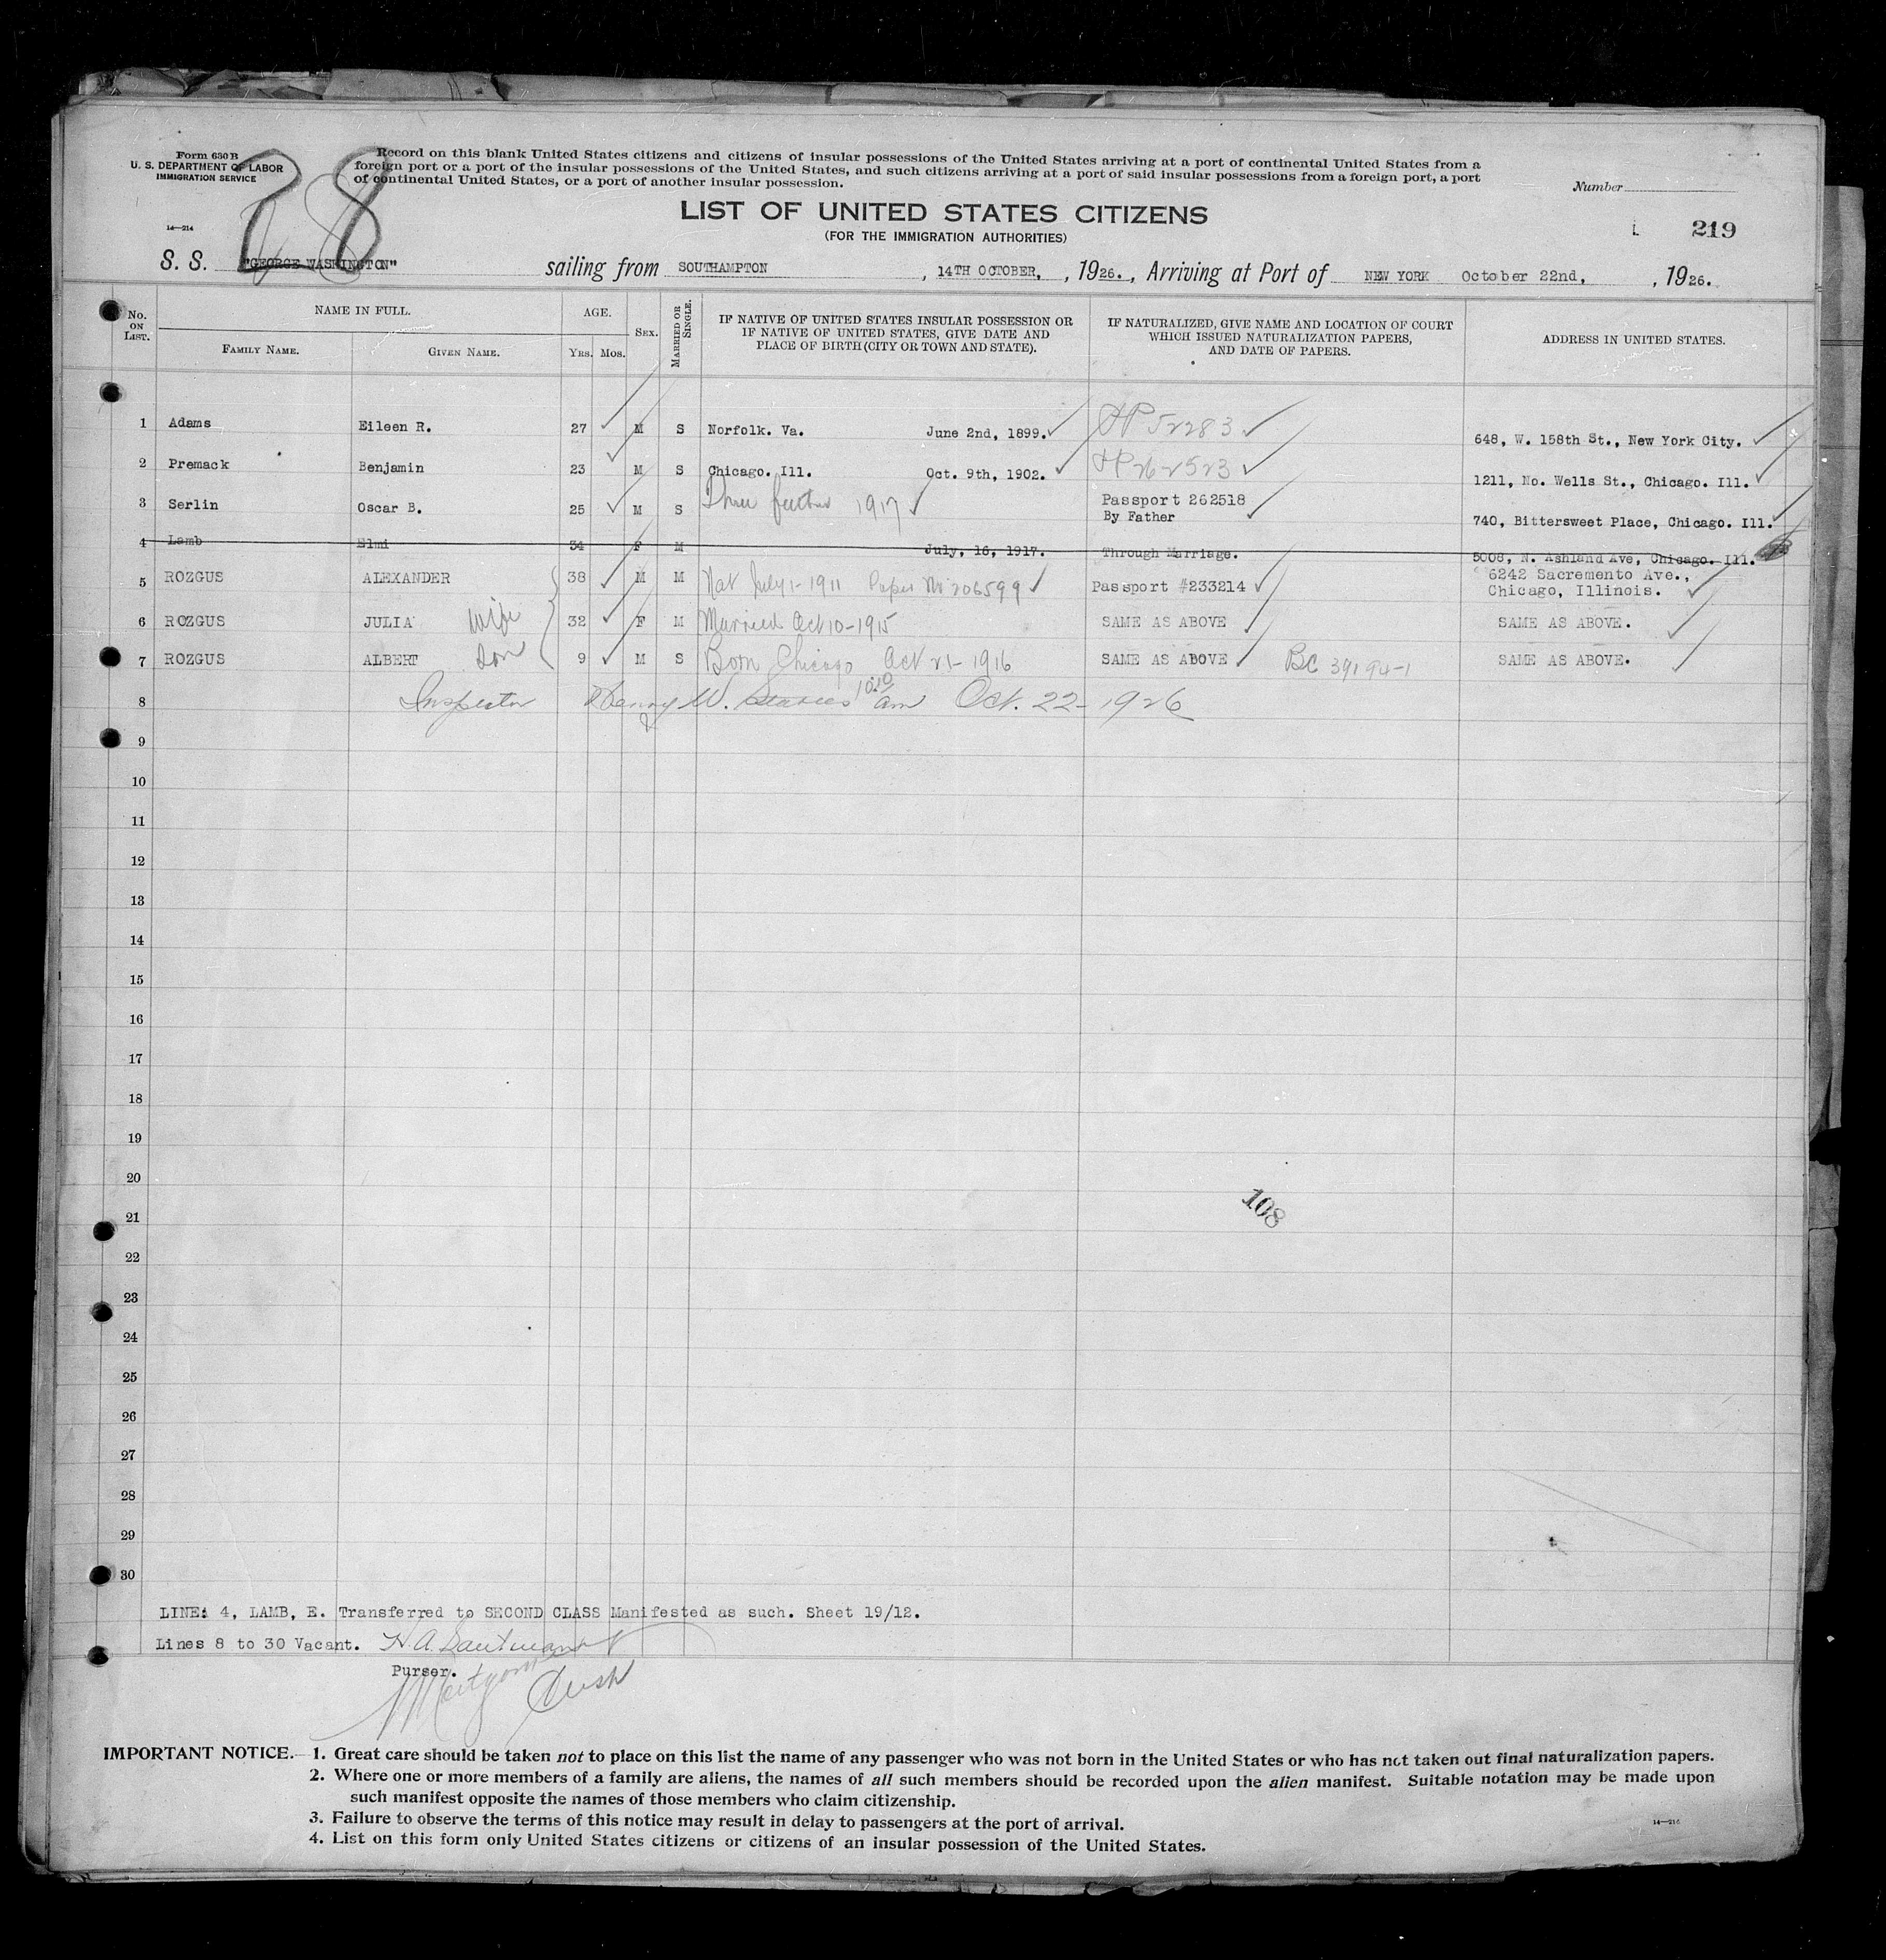 Form 630 B
U. S. DEPARTMENT OF LABOR
IMMIGRATION SERVICE
14—214
28
Record on this blank United States citizens and citizens of insular possessions of the United States arriving at a port of continental United States from a
foreign port or a port of the insular possessions of the United States, and such citizens arriving at a port of said insular possessions from a foreign port, a port
of continental United States, or a port of another insular possession.
Number
LIST OF UNITED STATES CITIZENS
(FOR THE IMMIGRATION AUTHORITIES)
L 219
S. S. "GEORGE WASHINGTON" sailing from SOUTHAMPTON, 14TH OCTOBER, , 1926. , Arriving at Port of NEW YORK October 22nd, , 1926.
No. ON LIST.
NAME IN FULL.
FAMILY NAME.
GIVEN NAME.
AGE.
YRS. MOS.
SEX.
MARRIED OR SINGLE.
IF NATIVE OF UNITED STATES INSULAR POSSESSION OR
IF NATIVE OF UNITED STATES, GIVE DATE AND
PLACE OF BIRTH (CITY OR TOWN AND STATE).
IF NATURALIZED, GIVE NAME AND LOCATION OF COURT
WHICH ISSUED NATURALIZATION PAPERS,
AND DATE OF PAPERS.
ADDRESS IN UNITED STATES.
1 Adams Eileen R. 27 M S Norfolk. Va. June 2nd, 1899. 52283 648, W. 158th St., New York City.
2 Premack Benjamin 23 M S Chicago. Ill. Oct. 9th, 1902. 262523 1211, No. Wells St., Chicago. Ill.
3 Serlin Oscar B. 25 M S father 1917 Passport 262518
By Father
740, Bittersweet Place, Chicago. Ill.
4 Lamb Elmi 34 F M July, 16, 1917. Through Marriage. 5008, N. Ashland Ave, Chicago. Ill.
5 ROZGUS ALEXANDER 38 M M Nat July 1-1911 Paper No 206599 Passport #233214 6242 Sacremento Ave.,
Chicago, Illinois.
6 ROZGUS JULIA wife 32 F M Married Oct 10-1915 SAME AS ABOVE SAME AS ABOVE.
7 ROZGUS ALBERT son 9 M S Born Chicago Oct 21-1916 SAME AS ABOVE BC 39194-1 SAME AS ABOVE.
8 Inspector Henry W. 10:10 am Oct. 22-1926
9
10
11
12
13
14
15
16
17
18
19
20
108
21
22
23
24
25
26
27
28
29
30
LINE: 4, LAMB, E. Transferred to SECOND CLASS Manifested as such. Sheet 19/12.
Lines 8 to 30 Vacant.
Purser.
IMPORTANT NOTICE.— 1. Great care should be taken not to place on this list the name of any passenger who was not born in the United States or who has not taken out final naturalization papers.
2. Where one or more members of a family are aliens, the names of all such members should be recorded upon the alien manifest. Suitable notation may be made upon
such manifest opposite the names of those members who claim citizenship.
3. Failure to observe the terms of this notice may result in delay to passengers at the port of arrival.
4. List on this form only United States citizens or citizens of an insular possession of the United States.
14—214